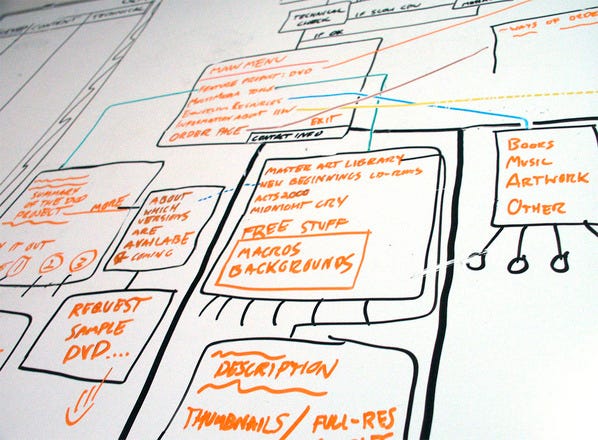 TECHNICAL
TECHNICAL
CHECK
IF SLOW CPU
IF OK
~ WAYS OF ORDER
MAIN MENU
FEATURE PRODUCT: DVD
MULTIMEDIA TOOLS
EMOTION RESOURCES
INFORMATION ABOUT
ORDER PAGE
EXIT
CONTACT INFO
SUMMARY
OF THE DVD
PROJECT
MORE
IT OUT
1
2
3
ABOUT
WHICH
VERSIONS
ARE
AVAILABLE
& COMING
REQUEST
SAMPLE
DVD....
MASTER ART LIBRARY
NEW BEGINNINGS CD-ROMS
ACTS 2000
MIDNIGHT CRY
FREE STUFF
MACROS
BACKGROUNDS
BOOKS
MUSIC
ARTWORK
OTHER
DESCRIPTION
THUMBNAILS / FULL-RES